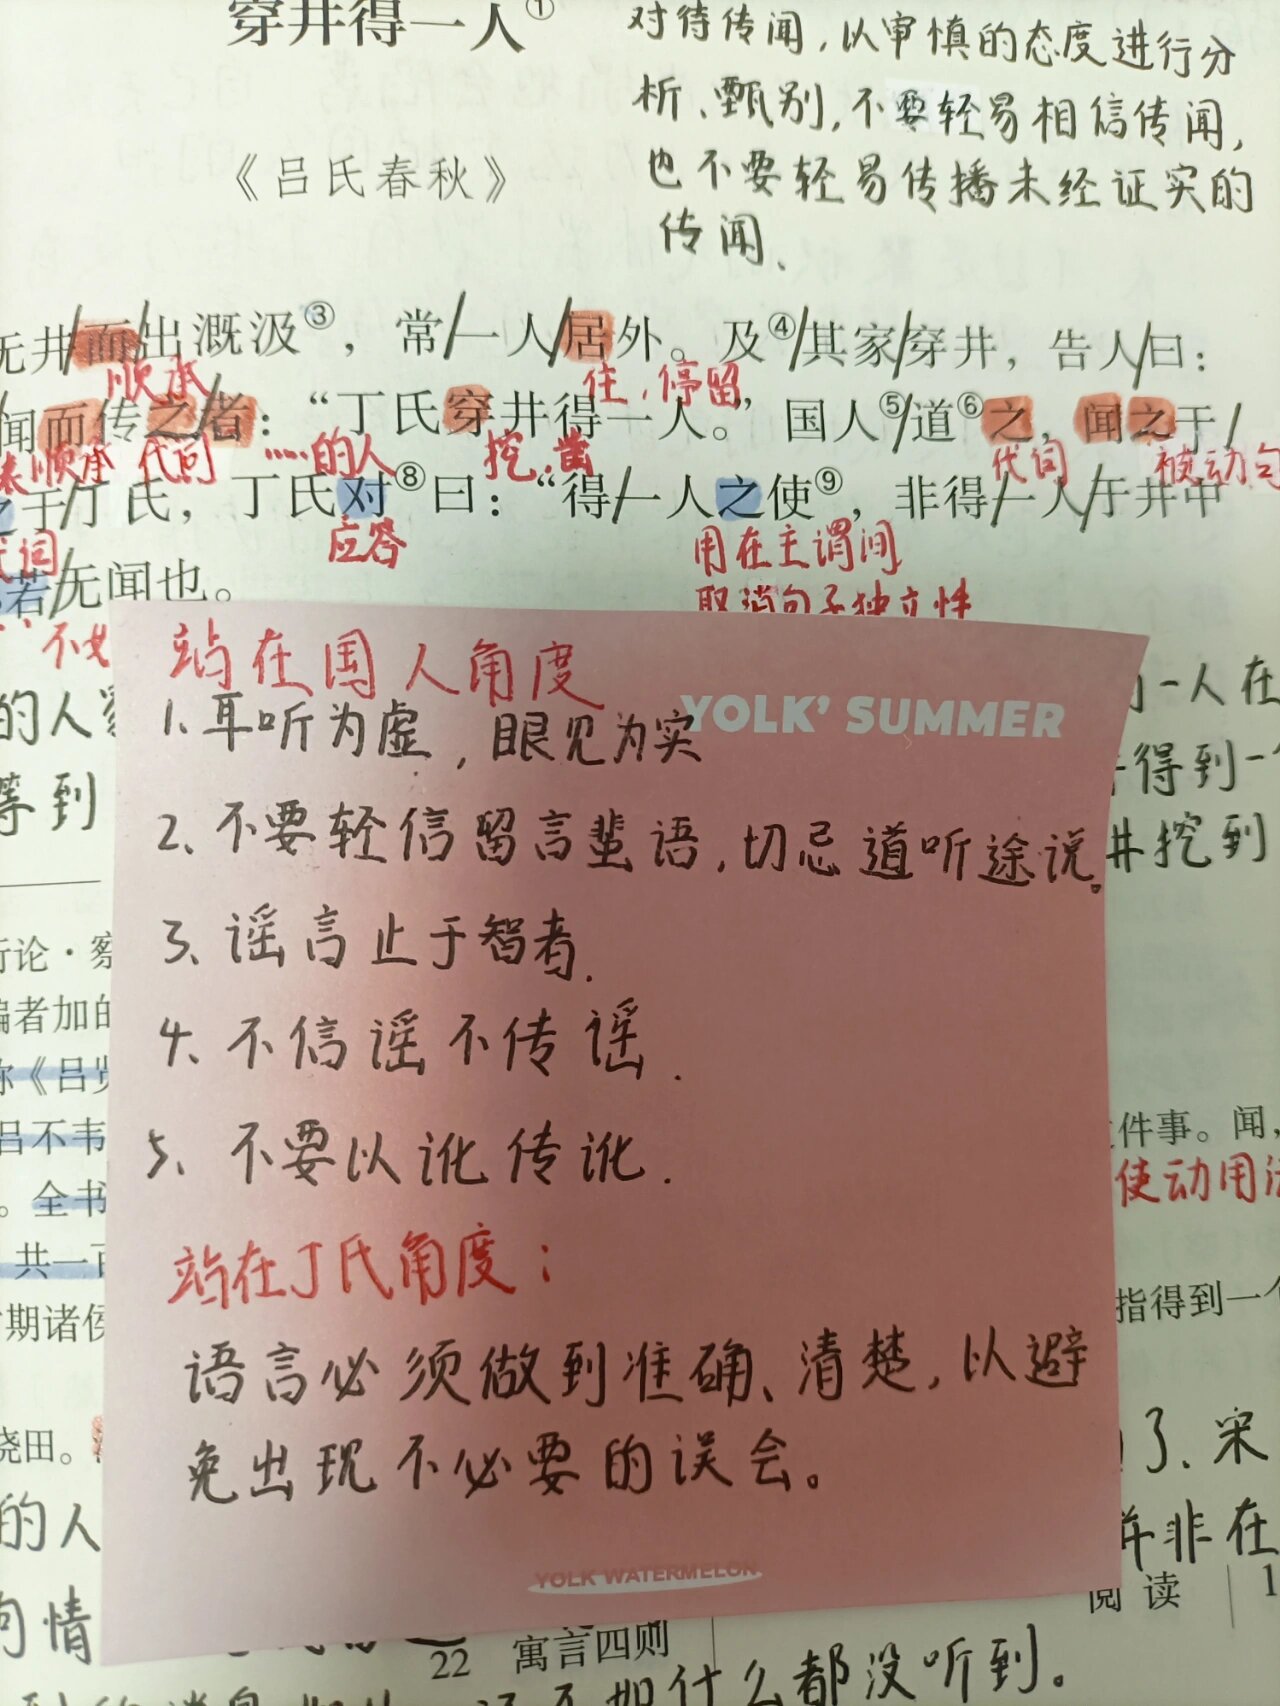 穿井得一人①
对待传闻,以审慎的态度进行分
析、甄别,不要轻易相信传闻,
《吕氏春秋》
也不要轻易传播未经证实的
传闻.
无井/而/出溉汲③,常/一人/居外。及④/其家/穿井,告人/曰:
顺承
住,停留
闻而传之/者:“丁氏穿井得一人。”国人⑤/道⑥之,闻之于/
表顺承 代词 ……的人 挖凿 代词 被动句
之于/丁氏,丁氏对⑧曰:“得/一人之使⑨,非得/一人/于井中
代词 应答 用在主谓间
若/无闻也。
取消句子独立性
不如
站在国人角度
YOLK' SUMMER
1、耳听为虚,眼见为实
2、不要轻信留言蜚语,切忌道听途说。
3、谣言止于智者.
4、不信谣不传谣.
5、不要以讹传讹.
站在丁氏角度:
语言必须做到准确、清楚,以避
免出现不必要的误会。
YOLK WATERMELON
的人
等到
一人在
得到一
井挖到
论·察
编者加的
称《吕
吕不韦
。全书
共一百
期诸侯
浇田。
的人
件事。闻,
使动用法
指得到一个
了、宋
并非在
阅读 1
22 寓言四则
如什么都没听到。